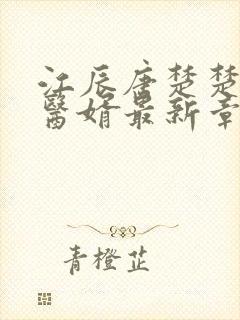 江辰唐楚楚
醫婿最新章
青橙芷